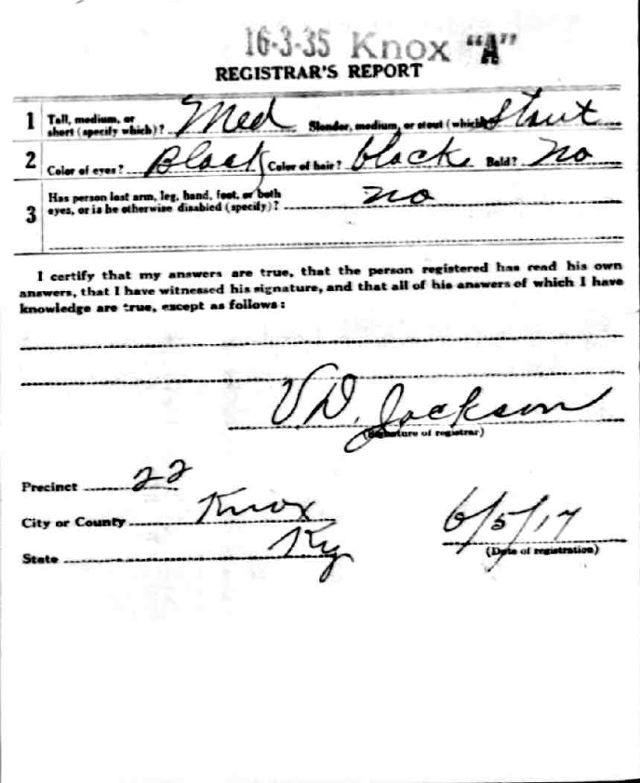 16-3-35 Knox "A"
REGISTRAR'S REPORT
1 Tall, medium, or short (specify which)? Med Slender, medium, or stout (which)? Stout
2 Color of eyes? Black Color of hair? black Bald? No
3 Has person lost arm, leg, hand, foot, or both
eyes, or is he otherwise disabled (specify)? no
I certify that my answers are true, that the person registered has read his own
answers, that I have witnessed his signature, and that all of his answers of which I have
knowledge are true, except as follows:
V.D. Jackson
(Signature of registrar)
Precinct 22
City or County Knox
State Ky
6/5/17
(Date of registration)